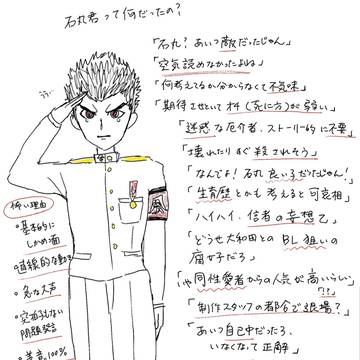 石丸君って何だったの?
「石丸?あいつ敵だったじゃん」
「空気読めなかったよね」
「何考えてるか分からなくて不気味」
「期待させといてオチ(死に方)が弱い」
「迷惑な厄介者、ストーリー的に不要」
「壊れたりすぐ殺されそう」
「なんでよ!石丸良い子だったじゃん!」
「生育歴とかも考えると可哀相」
「ハイハイ、信者の妄想乙」
「どうせ大和田とのBL狙いの
腐女子だろ」
「いや同性愛者からの人気が高いらしい」
!?
「制作スタッフの都合で退場?」
「あいつ自己中だったろ、
いなくなって正解」
風
怖い理由
・基本的に
しかめ面
・直線的な動き
・急な大声
・空気よまない
問題発言
・善意100%